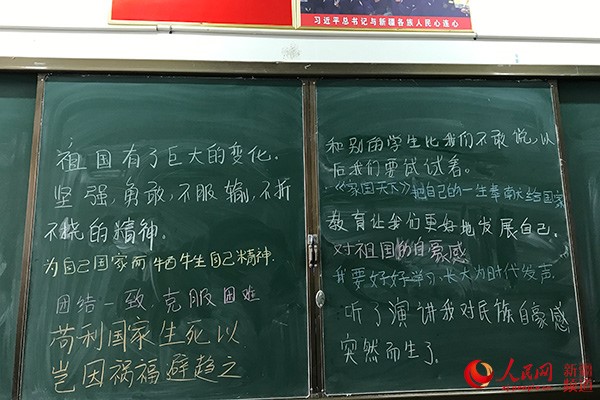 习近平总书记与新疆各族人民心连心
祖国有了巨大的变化.
坚强,勇敢,不服输,不折
不挠的精神.
为自己国家而牺牲自己精神.
团结一致,克服困难
苟利国家生死以
岂因祸福避趋之
和别的学生比我们不敢说,以
后我们要试试看。
·《家国天下》把自己的一生奉献给国家
教育让我们更好地发展自己.
对祖国的自豪感
我要好好学习,长大为时代发声
听了演讲我对民族自豪感
突然而生了。
人民网
新疆
频道